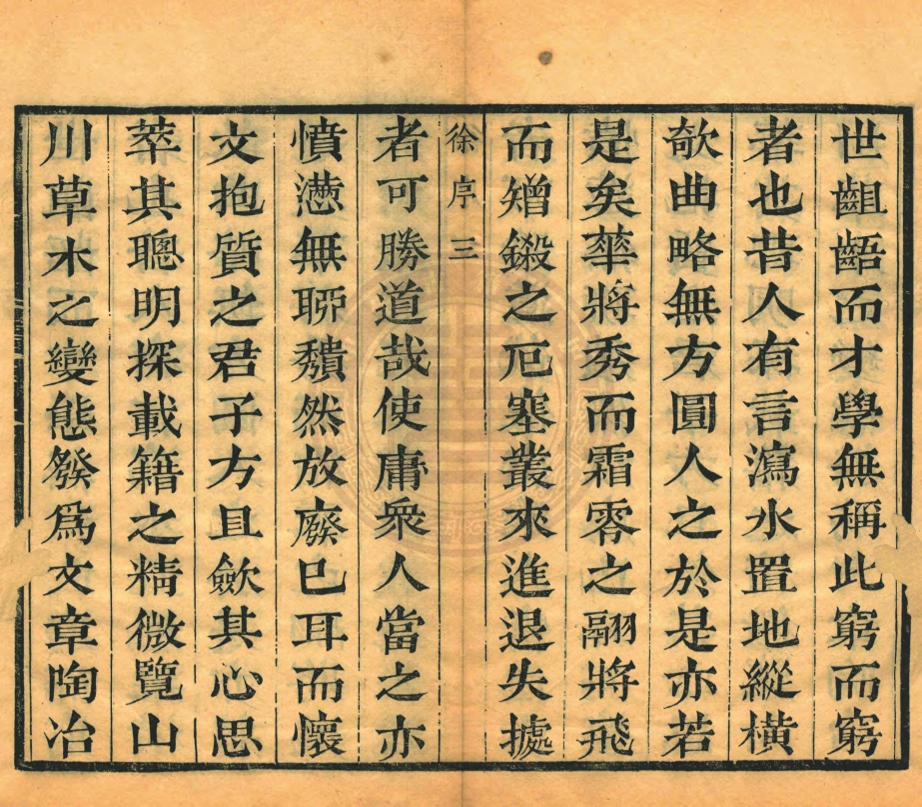 世齟齬而才學無稱此窮而窮
者也昔人有言瀉水置地縱橫
欹曲略無方圓人之於是亦若
是矣華將秀而霜零之翮將飛
而矰鎩之厄塞叢來進退失據
徐序 三
者可勝道哉使庸衆人當之亦
憤懣無聊穨然放廢已耳而懷
文抱質之君子方且歛其心思
萃其聰明探載籍之精微覽山
川草木之變態發爲文章陶冶